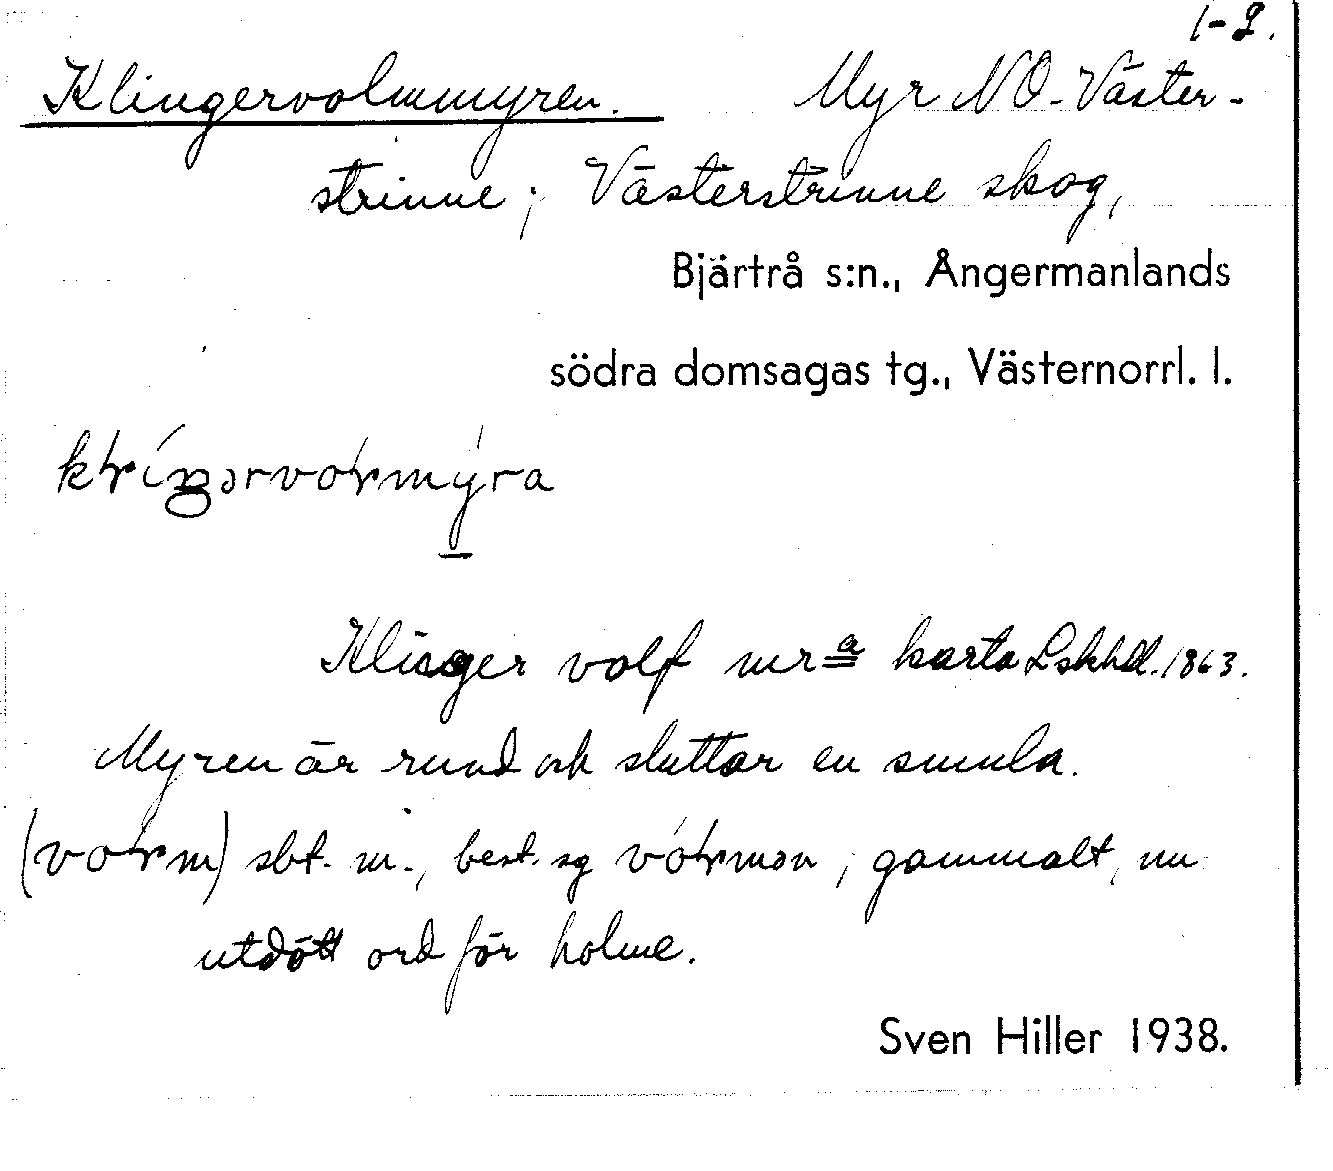 1-2.
Klingervolmmyren. Myr NO-Väster-
strinne; Västerstrinne skog,
Bjärtrå s:n., Ångermanlands
södra domsagas tg., Västernorrl. l.
Klinger volf mra karta Lskhdl. 1863.
Myren är rund och sluttar en smula.
sbt. m., best. sg , gammalt, nu
utdött ord för holme.
Sven Hiller 1938.